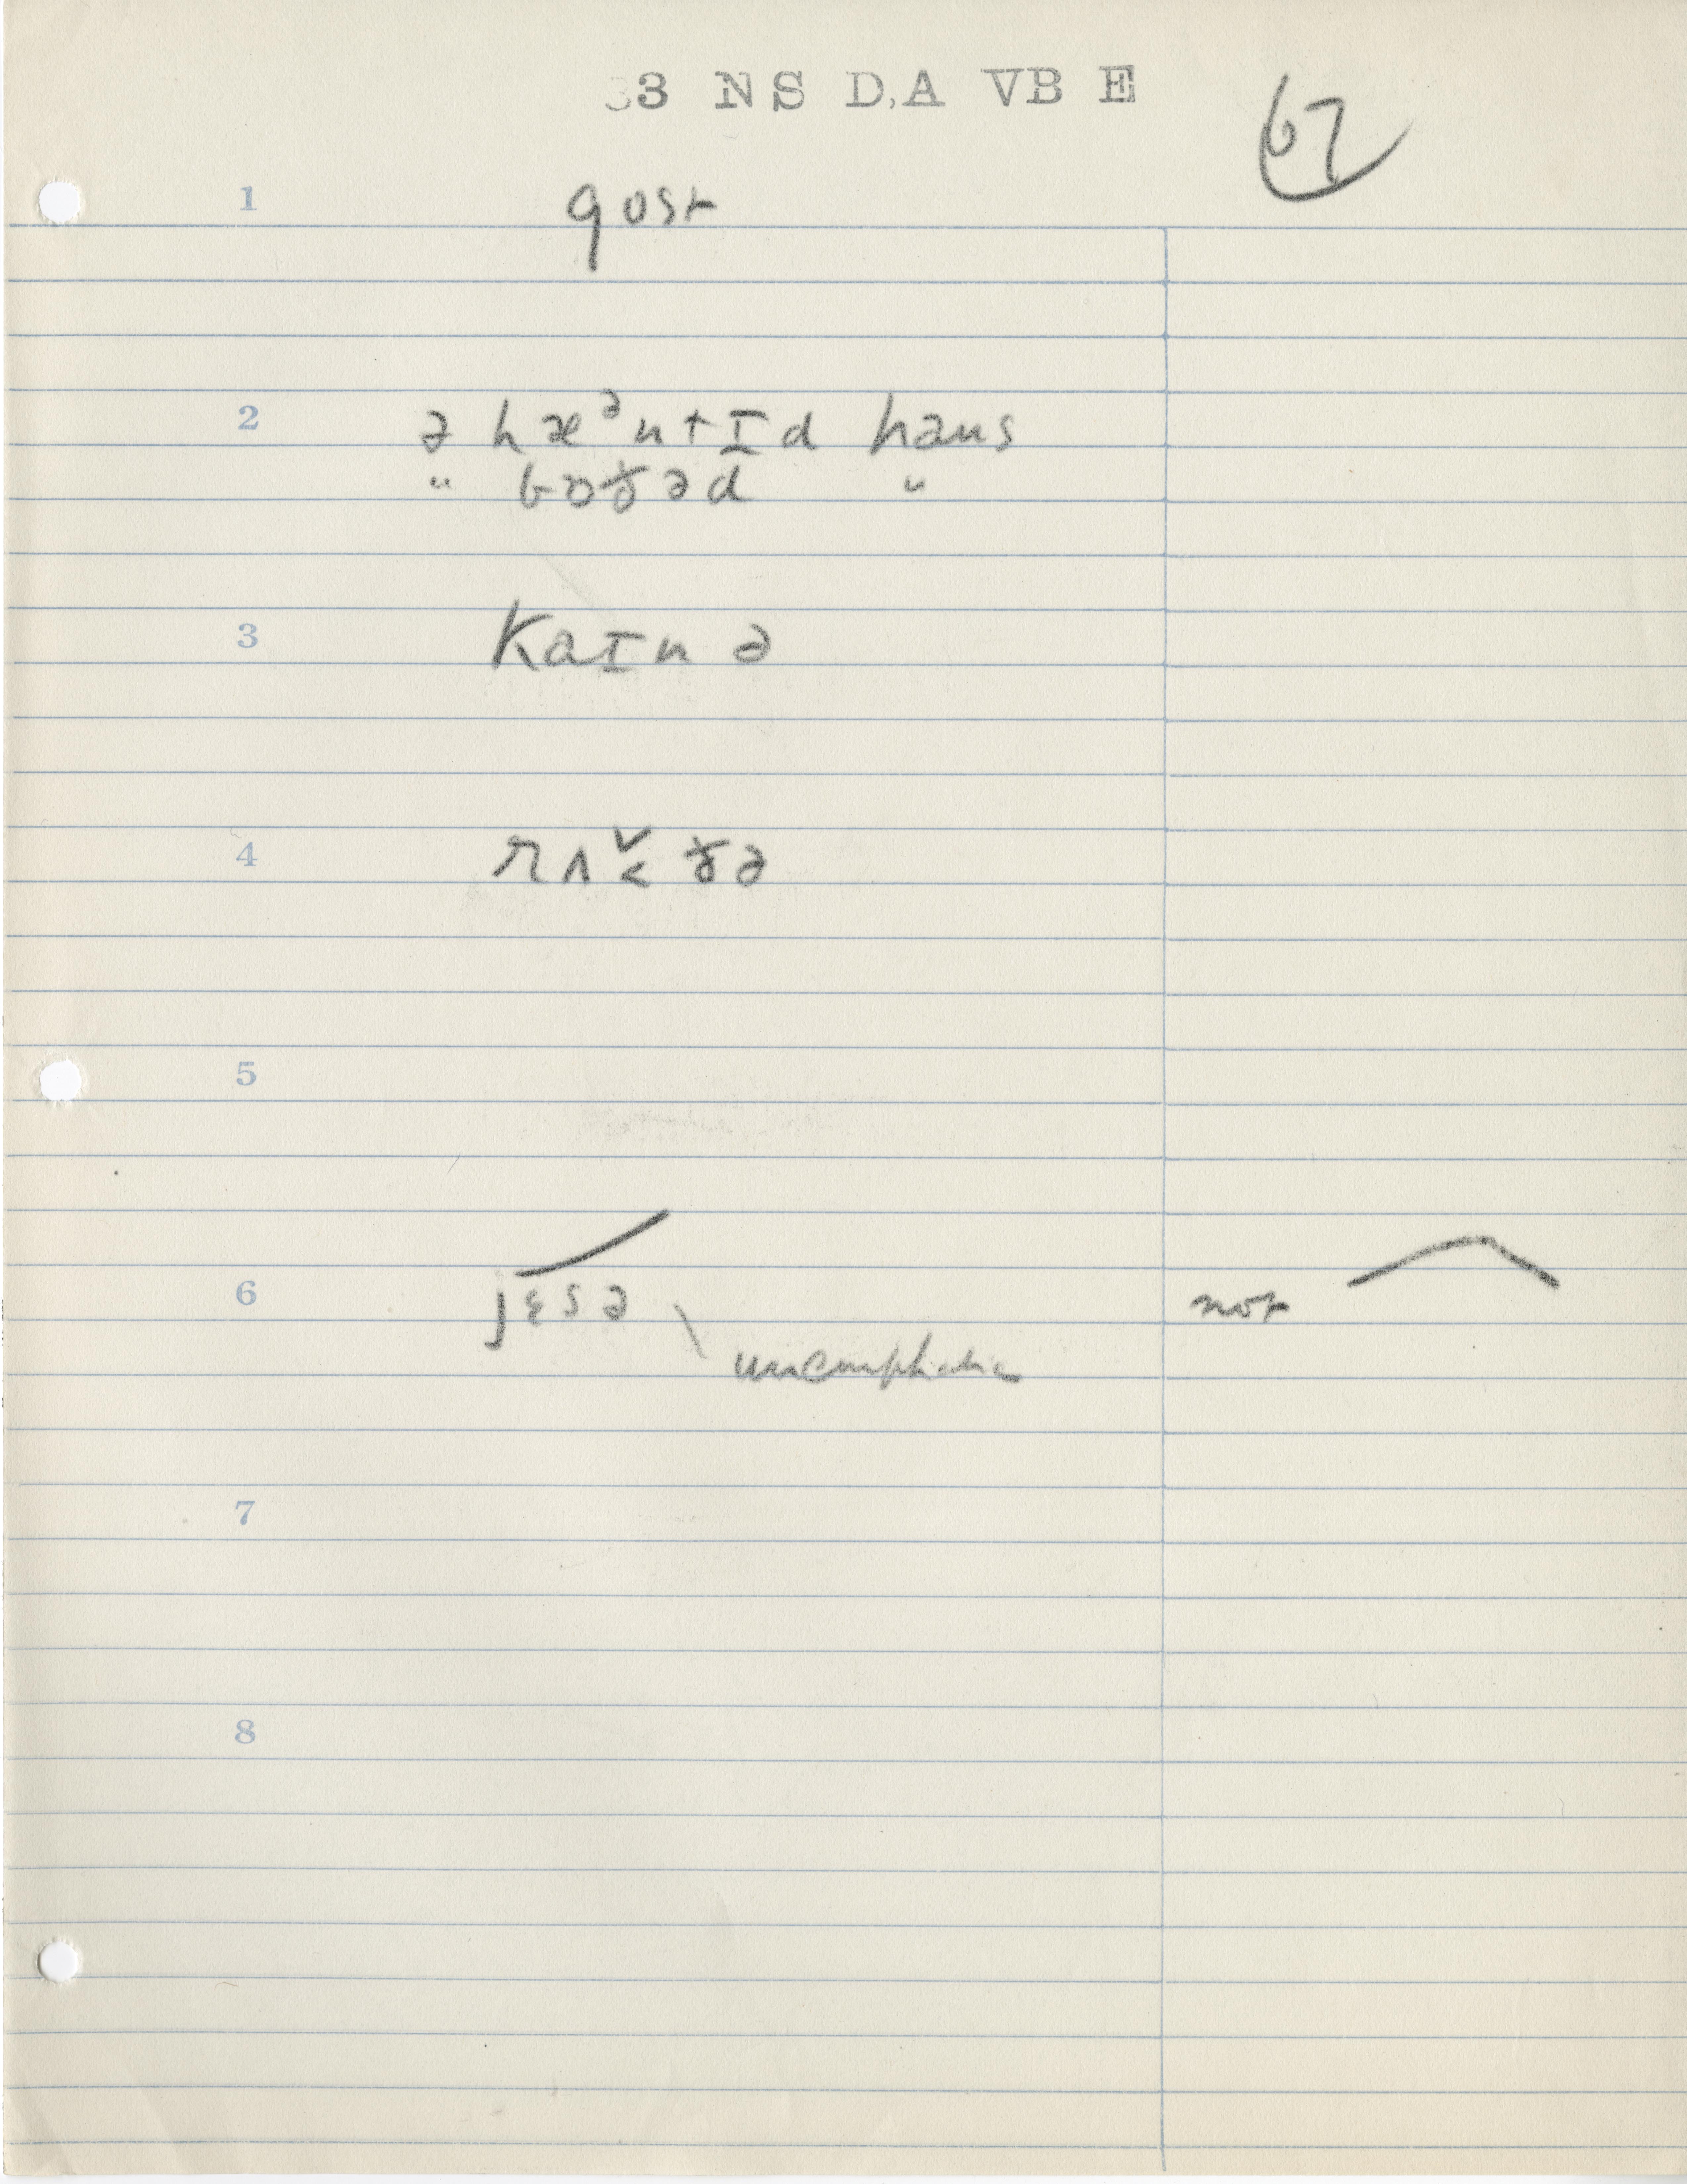 33 NS D,A VB E
67
1 gost
2 ə hæᵊntɪd həus
" bɒðəd "
3 kaɪnə
4 rʌ ðə
5
6 jɛsə \ not
unemphatic
7
8